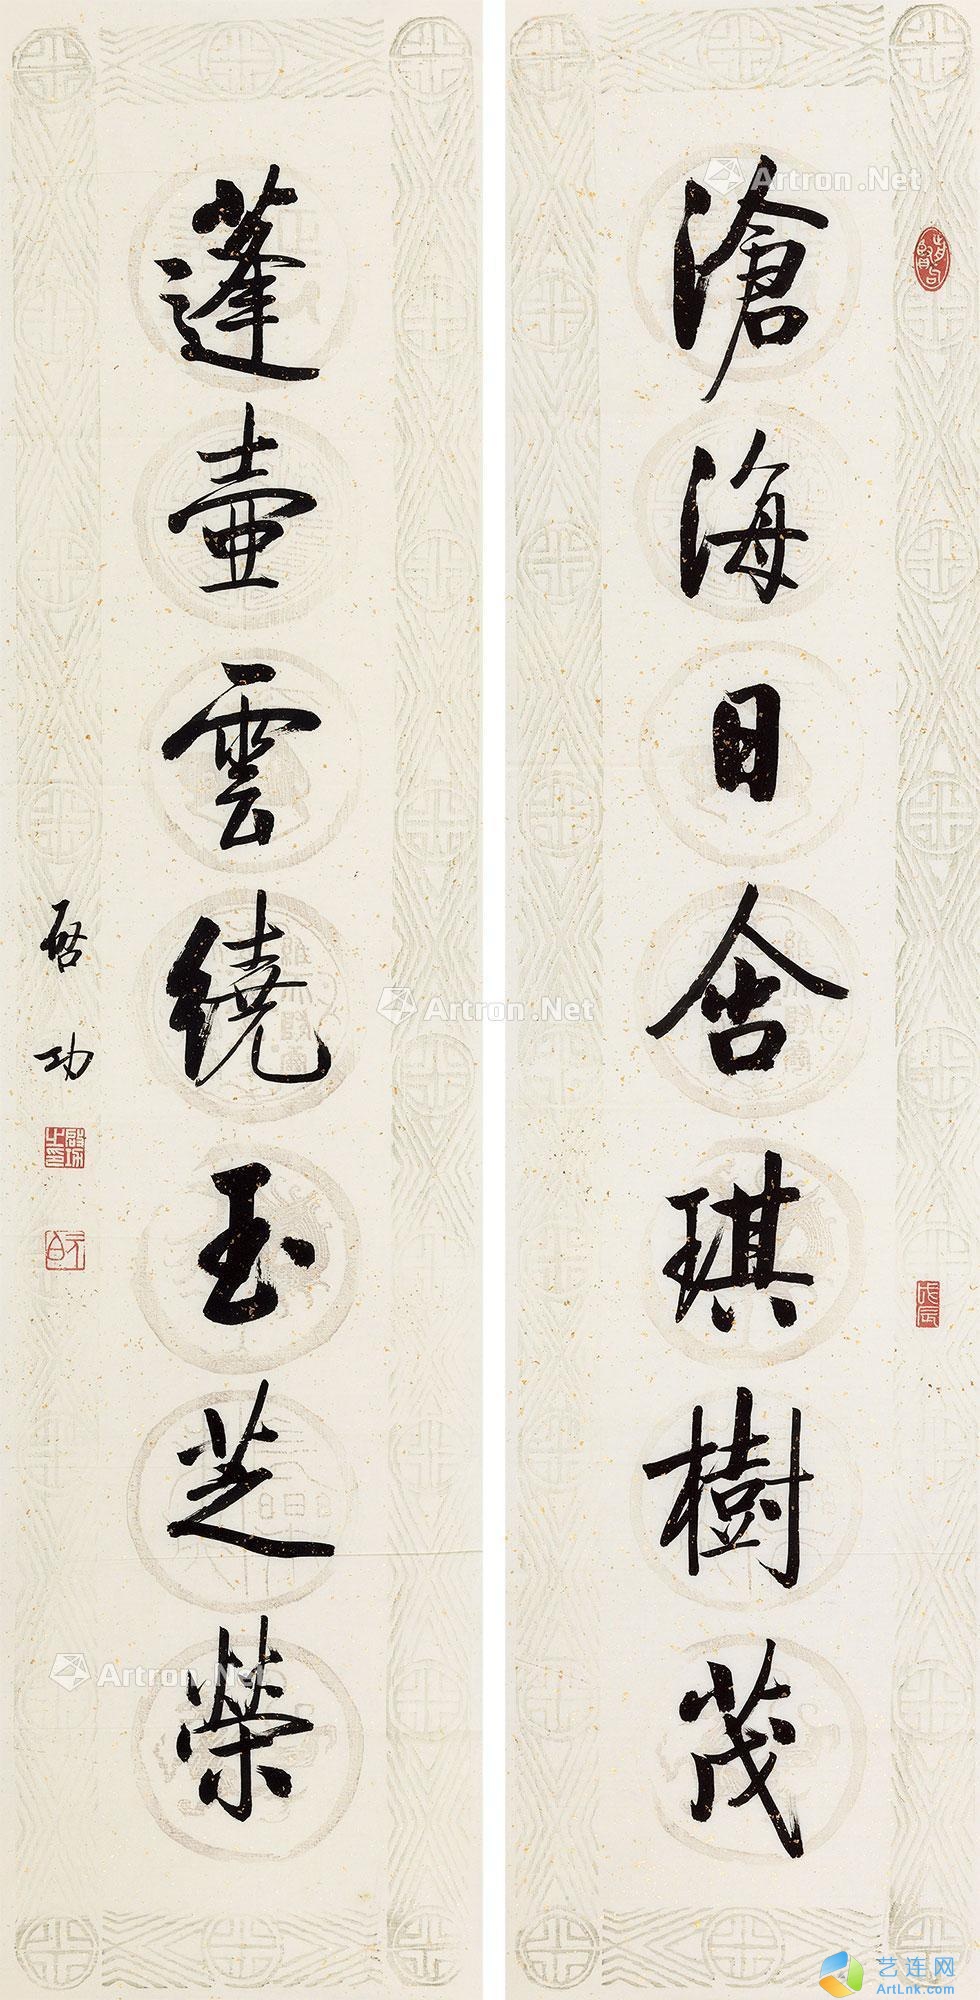 滄海日含琪樹茂
蓬壺雲繞玉芝榮
啓功
啟功之印
元白
戊辰
Artron.Net
Artron.Net
Artron.Net
艺连网
ArtLnk.com